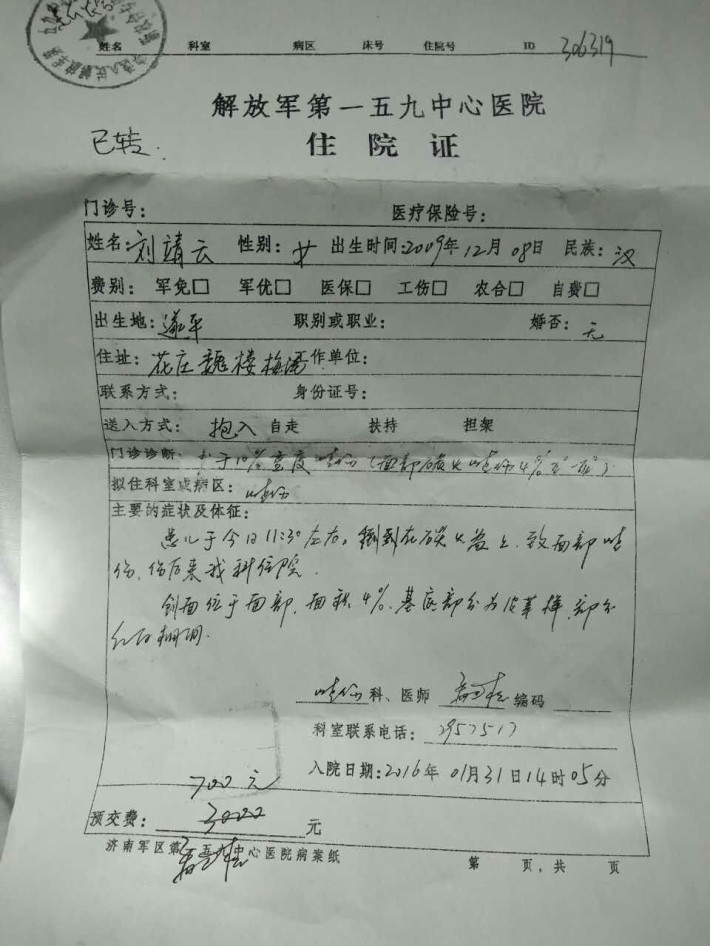 姓名 科室 病区 床号 住院号 ID 306319
解放军第一五九中心医院
已转.
住院证
门诊号: 医疗保险号:
姓名:刘靖云 性别:女 出生时间:2009年12月08日 民族:汉
费别: 军免□ 军优□ 医保□ 工伤□ 农合□ 自费□
出生地:遂平 职别或职业: 婚否:无
住址:花庄魏楼 作单位:
联系方式: 身份证号:
送入方式: 抱入 自走 扶持 担架
门诊诊断: 小于10%重度烧伤(面部碳火烧伤4%
拟住科室或病区:烧伤
主要的症状及体征:
患儿于今日11:30左右,倒在碳火盆上,致面部烧
伤,伤后来我科住院.
创面位于面部,面积4%,基底部分为皮革样,部分
红白相间.
烧伤科、医师 编码
科室联系电话: 2957517
入院日期:2016年01月31日14时05分
700元
预交费: 3000 元
济南军区第一五九中心医院病案纸
第 页,共 页